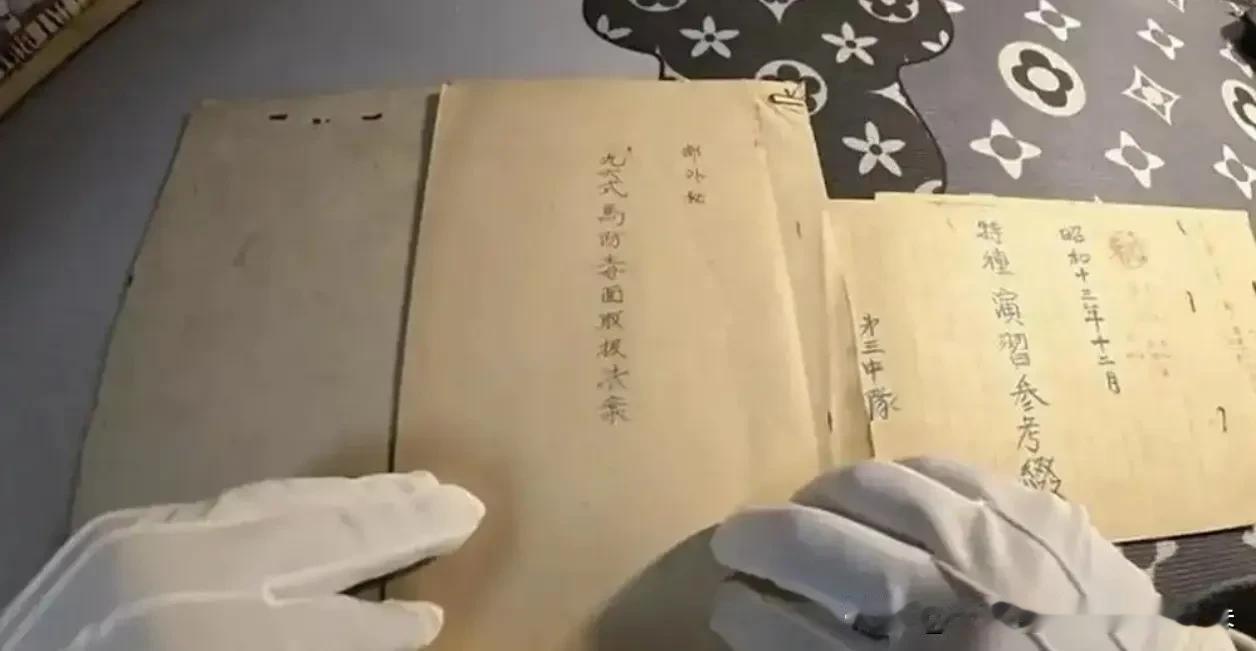 部外秘
九六式馬防毒面取扱法案
昭和十三年十二月
特種演習参考綴
第三中隊